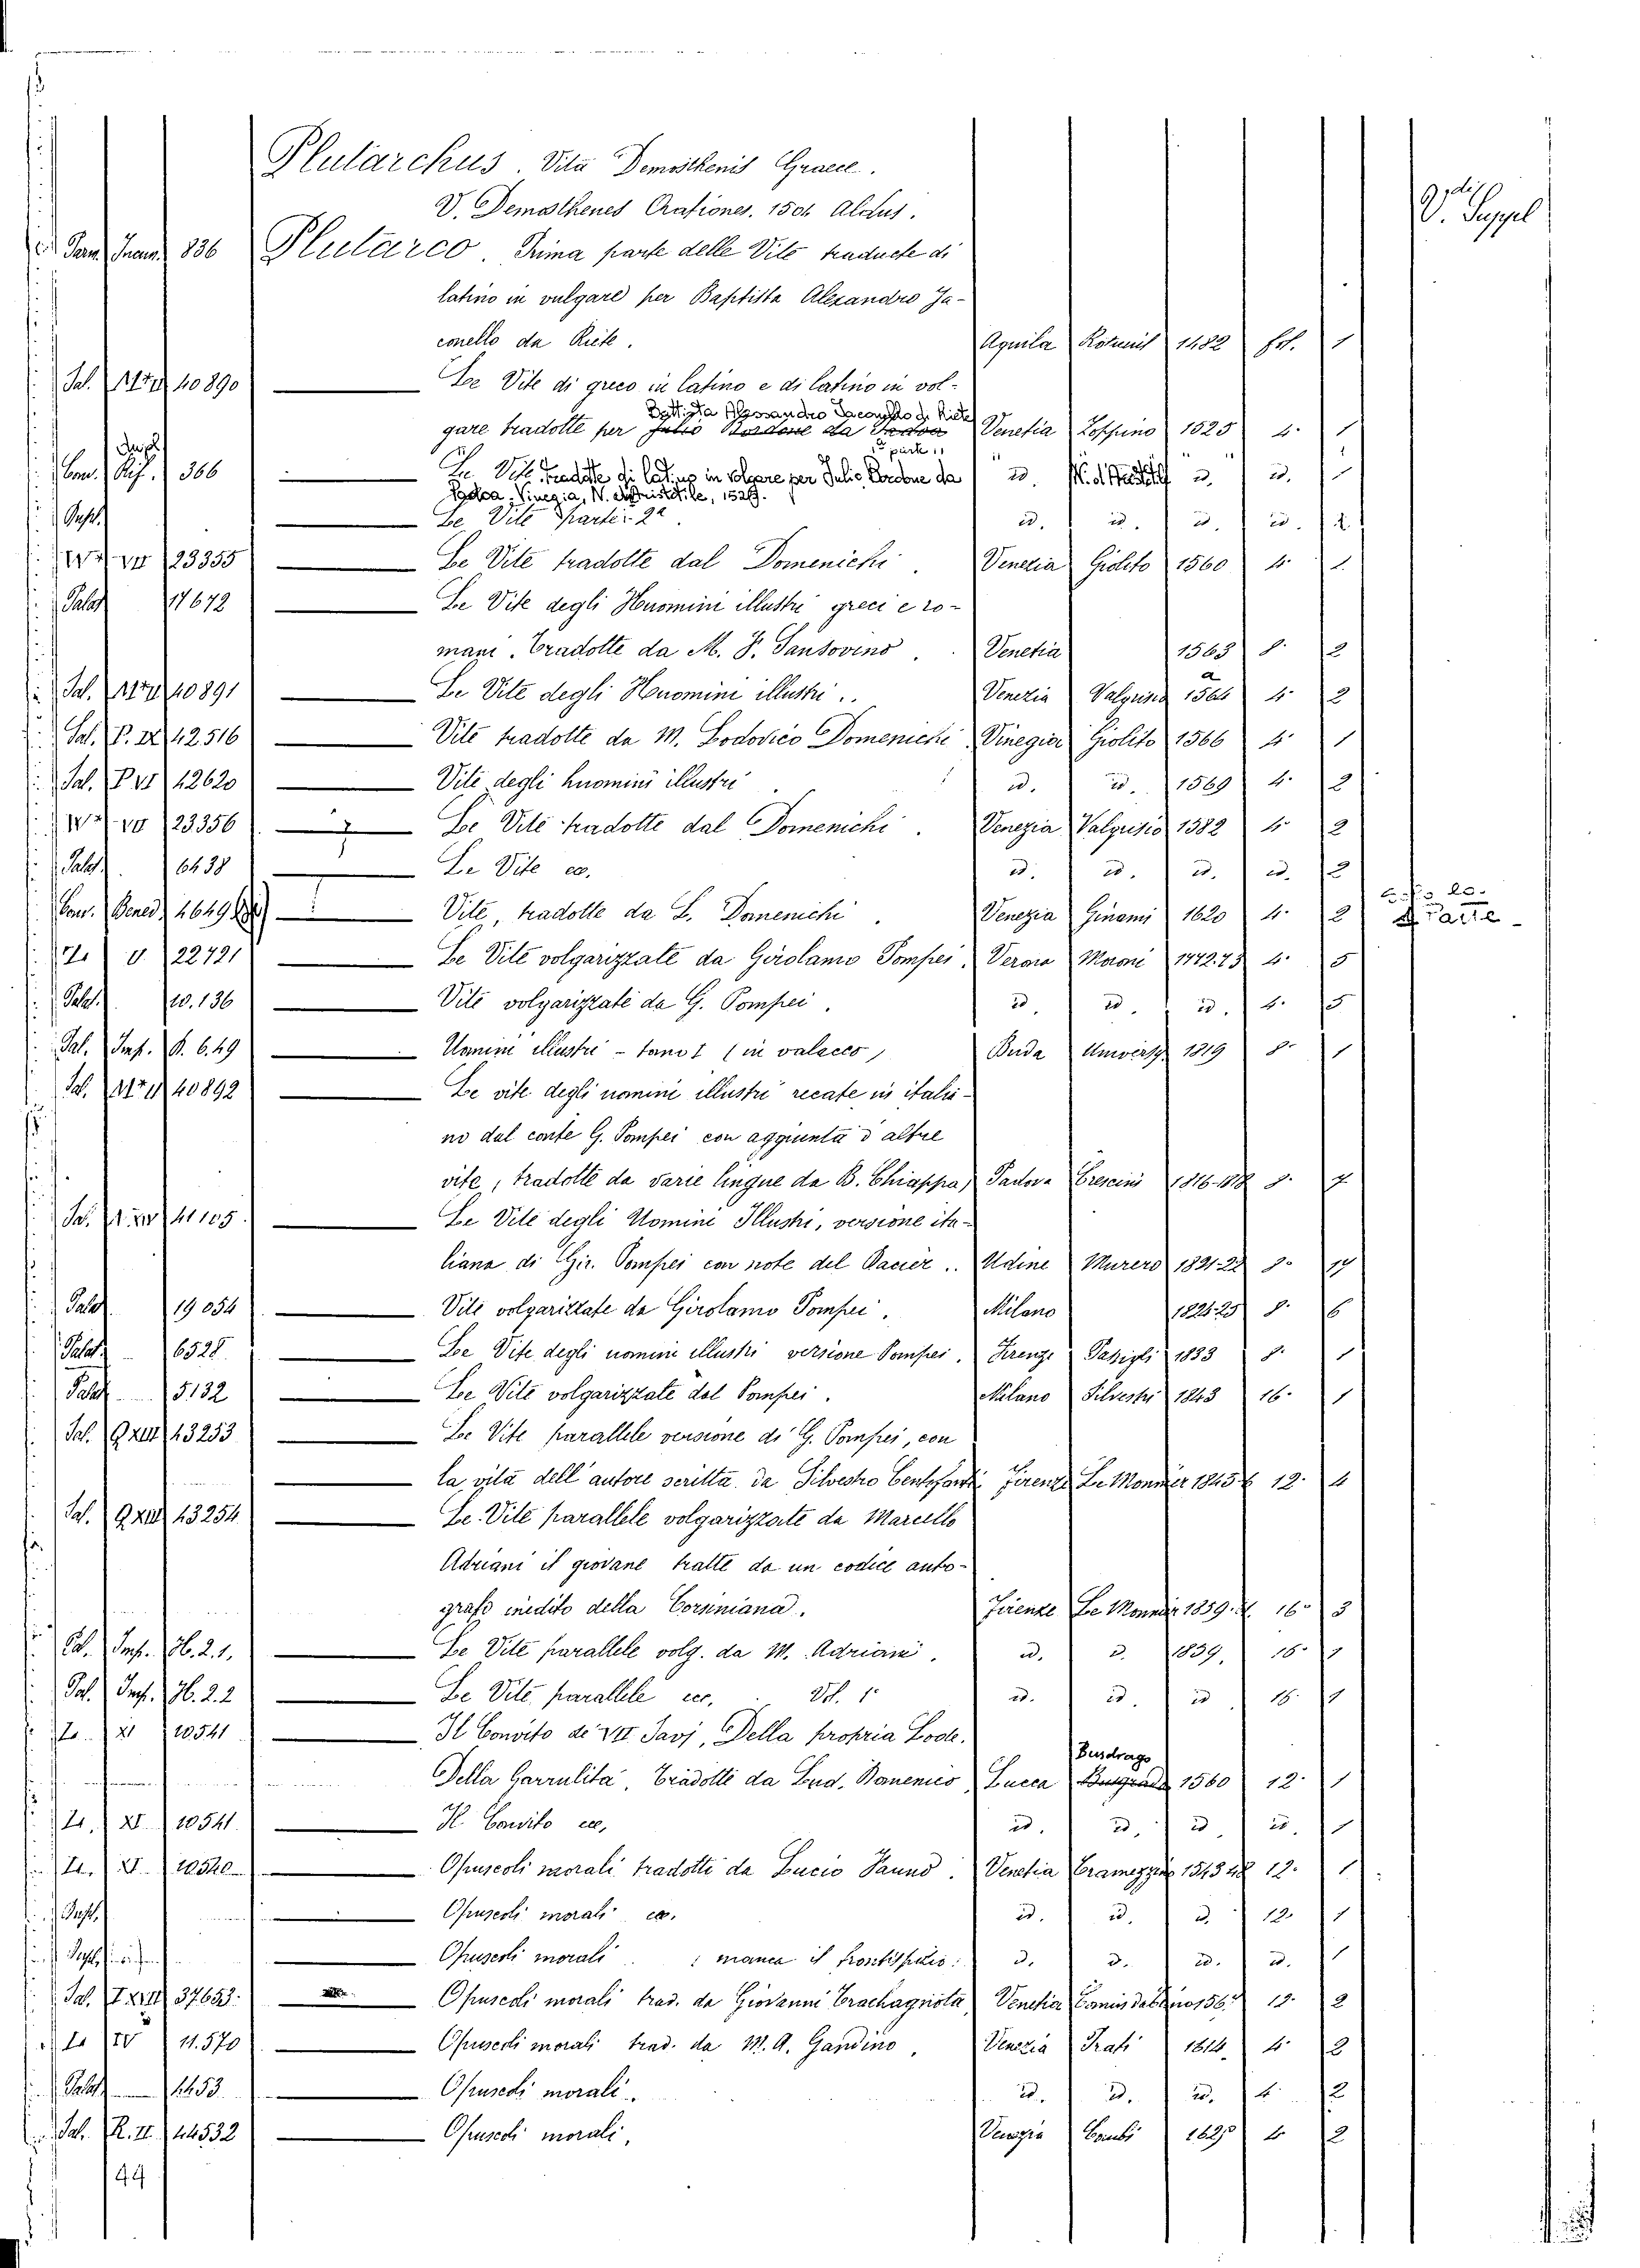 Plutarchus. Vita Demosthenis Graece.
V. Demosthenes Orationes. 1504 Aldus.
V. Suppl
836 Plutarco. Prima parte delle Vite traducte di
latino in vulgare per Baptista Alexandro Ja-
conello da Riete. Aquila 1482 fol. 1
Sal. 40890 — Le Vite di greco in latino e di latino in vol-
Battista Alessandro Jaconello da Riete
gare tradotte per Julio Bordone da Padova Venetia Zoppino 1525 4. 1
Suppl.
366 — Le Vite tradotte di latino in volgare per Julio Bordone da id. id. id. 1
Padoa, Vinegia, N. d'Aristotile, 1529.
Suppl. — Le Vite Parte 2ª. id. id. id. id. 1
23355 — Le Vite tradotte dal Domenichi. Venezia Giolito 1560 4. 2
Palat. 17672 — Le Vite degli Huomini illustri greci e ro-
mani. Tradotte da M. F. Sansovino. Venetia 1563 8. 2
Sal. 40891 — Le Vite degli Huomini illustri.. Venezia Valgrisio 1564 4. 2
Sal. P. IX 42516 — Vite tradotte da M. Lodovico Domenichi Vinegia Giolito 1566 4. 1
Sal. P VI 42620 — Vite degli huomini illustri id. id. 1569 4. 2
23356 — Le Vite tradotte dal Domenichi. Venezia Valgrisio 1582 4. 2
Palat. 6438 — Le Vite ec. id. id. id. id. 2
Conv. Bened. 4649 — Vite, tradotte da L. Domenichi. Venezia Ginami 1620 4. 2
22791 — Le Vite volgarizzate da Girolamo Pompei. Verona Moroni 1772.73 4. 5
Palat. 10.136 — Vite volgarizzate da G. Pompei. id. id. id. 4. 5
Sal. Imp. B. 6.49 — Uomini illustri - tomo 1 (in valacco) Buda Universy. 1819 8. 1
Sal. 40892 — Le vite degli uomini illustri recate in italia-
no dal conte G. Pompei con aggiunta d'altre
vite, tradotte da varie lingue da B. Chiappa) Padova Crescini 1816-18 8. 7
Sal. 41105. — Le Vite degli Uomini Illustri, versione ita-
liana di Gir. Pompei con note del Dacier.. Udine Murero 1821-22 8.
Palat. 19054 — Vite volgarizzate da Girolamo Pompei. Milano 1824-25 8. 6
Palat. 6528 — Le Vite degli uomini illustri versione Pompei. Firenze Passigli 1833 8. 1
Palat. 5132 — Le Vite volgarizzate dal Pompei. Milano Silvestri 1843 16. 1
Sal. Q XIII 43253 — Le Vite parallele versione di G. Pompei, con
— la vita dell'autore scritta da Silvestro Centofanti Firenze Le Monnier 1845-6 12. 4
Sal. Q XIII 43254 — Le Vite parallele volgarizzate da Marcello
Adriani il giovane tratte da un codice auto-
grafo inedito della Corsiniana. Firenze Le Monnier 1859. 16. 3
Sal. Imp. H. 2.1. — Le Vite parallele volg. da M. Adriani. id. id. 1859. 16. 1
Sal. Imp. H. 2.2 — Le Vite parallele ec. Vol. 1º id. id. id 16. 1
XI 10541 — Il Convito de' VII Savj, Della propria Lode.
Busdrago
Della Garrulità, Tradotte da Lud. Domenico, Lucca 1560 12. 1
XI 10541 — Il Convito ec, id. id, id id. 1
XI 10540 — Opuscoli morali tradotti da Lucio Fauno. Venetia Tramezzino 1543 48 12. 1
Suppl. — Opuscoli morali ec. id. id. id. 12. 1
Suppl. — Opuscoli morali: manca il frontispizio: id. id. id. id. 1
Sal. 37653. — Opuscoli morali trad. da Giovanni Tarchagnota, Venetia Comin da Trino 156 12. 2
IV 11.570 — Opuscoli morali trad. da M. A. Gandino. Venezia Prati 1614 4. 2
Palat. 4453 — Opuscoli morali. id. id. id. 4. 2
Sal. R. II. 44532 — Opuscoli morali. Venezia Combi 1625 4 2
44